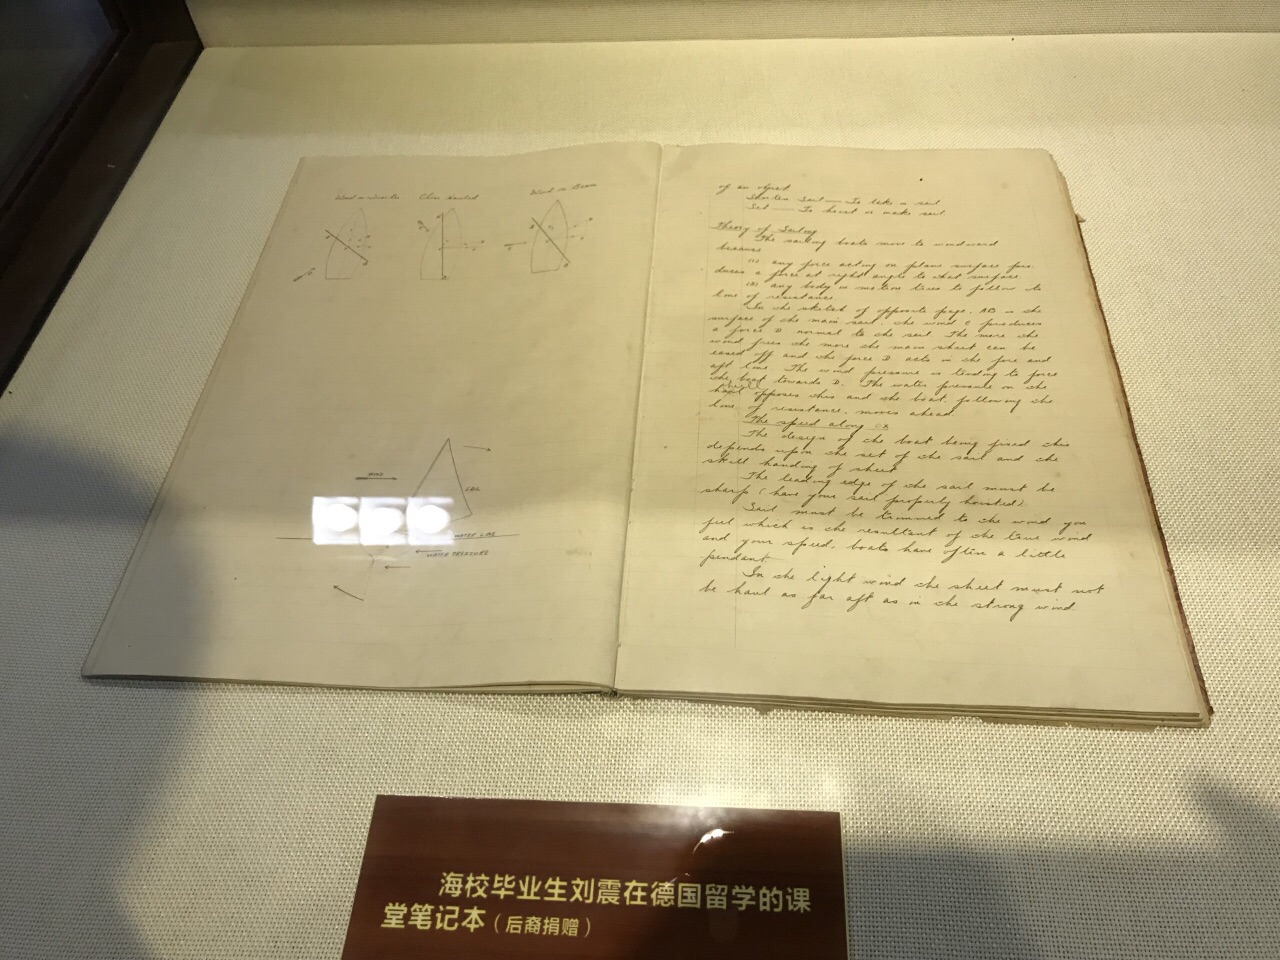 Wind on Quarter
Close Hauled
Wind on Beam
WIND
SAIL
WATER LINE
WATER PRESSURE
of an object
Shorten Sail — To take a sail
Set — To hoist or make sail
Theory of Sailing
The sailing boats move to windward
because
(1) any force acting on plane surface pro-
duces a force at right angle to that surface
(2) any body in motion tries to follow to
line of resistance
In the sketch of opposite page, AB is the
surface of the main sail, the wind C produces
a force D normal to the sail. The more the
wind frees the more the main sheet can be
eased off and the force D acts in the fore and
aft line. The wind pressure is tending to force
the boat towards D. The water pressure on the
opposes this and the boat, following the
line of resistance, moves ahead.
The speed along
The design of the boat being fixed this
depends upon the set of the sail and the
skill handing of sheet
The leading edge of the sail must be
sharp (have your sail properly hoisted)
Sail must be trimmed to the wind you
feel which is the resultant of the true wind
and your speed, boats have often a little
pendant
In the light wind the sheet must not
be haul as far aft as in the strong wind
海校毕业生刘震在德国留学的课
堂笔记本（后裔捐赠）